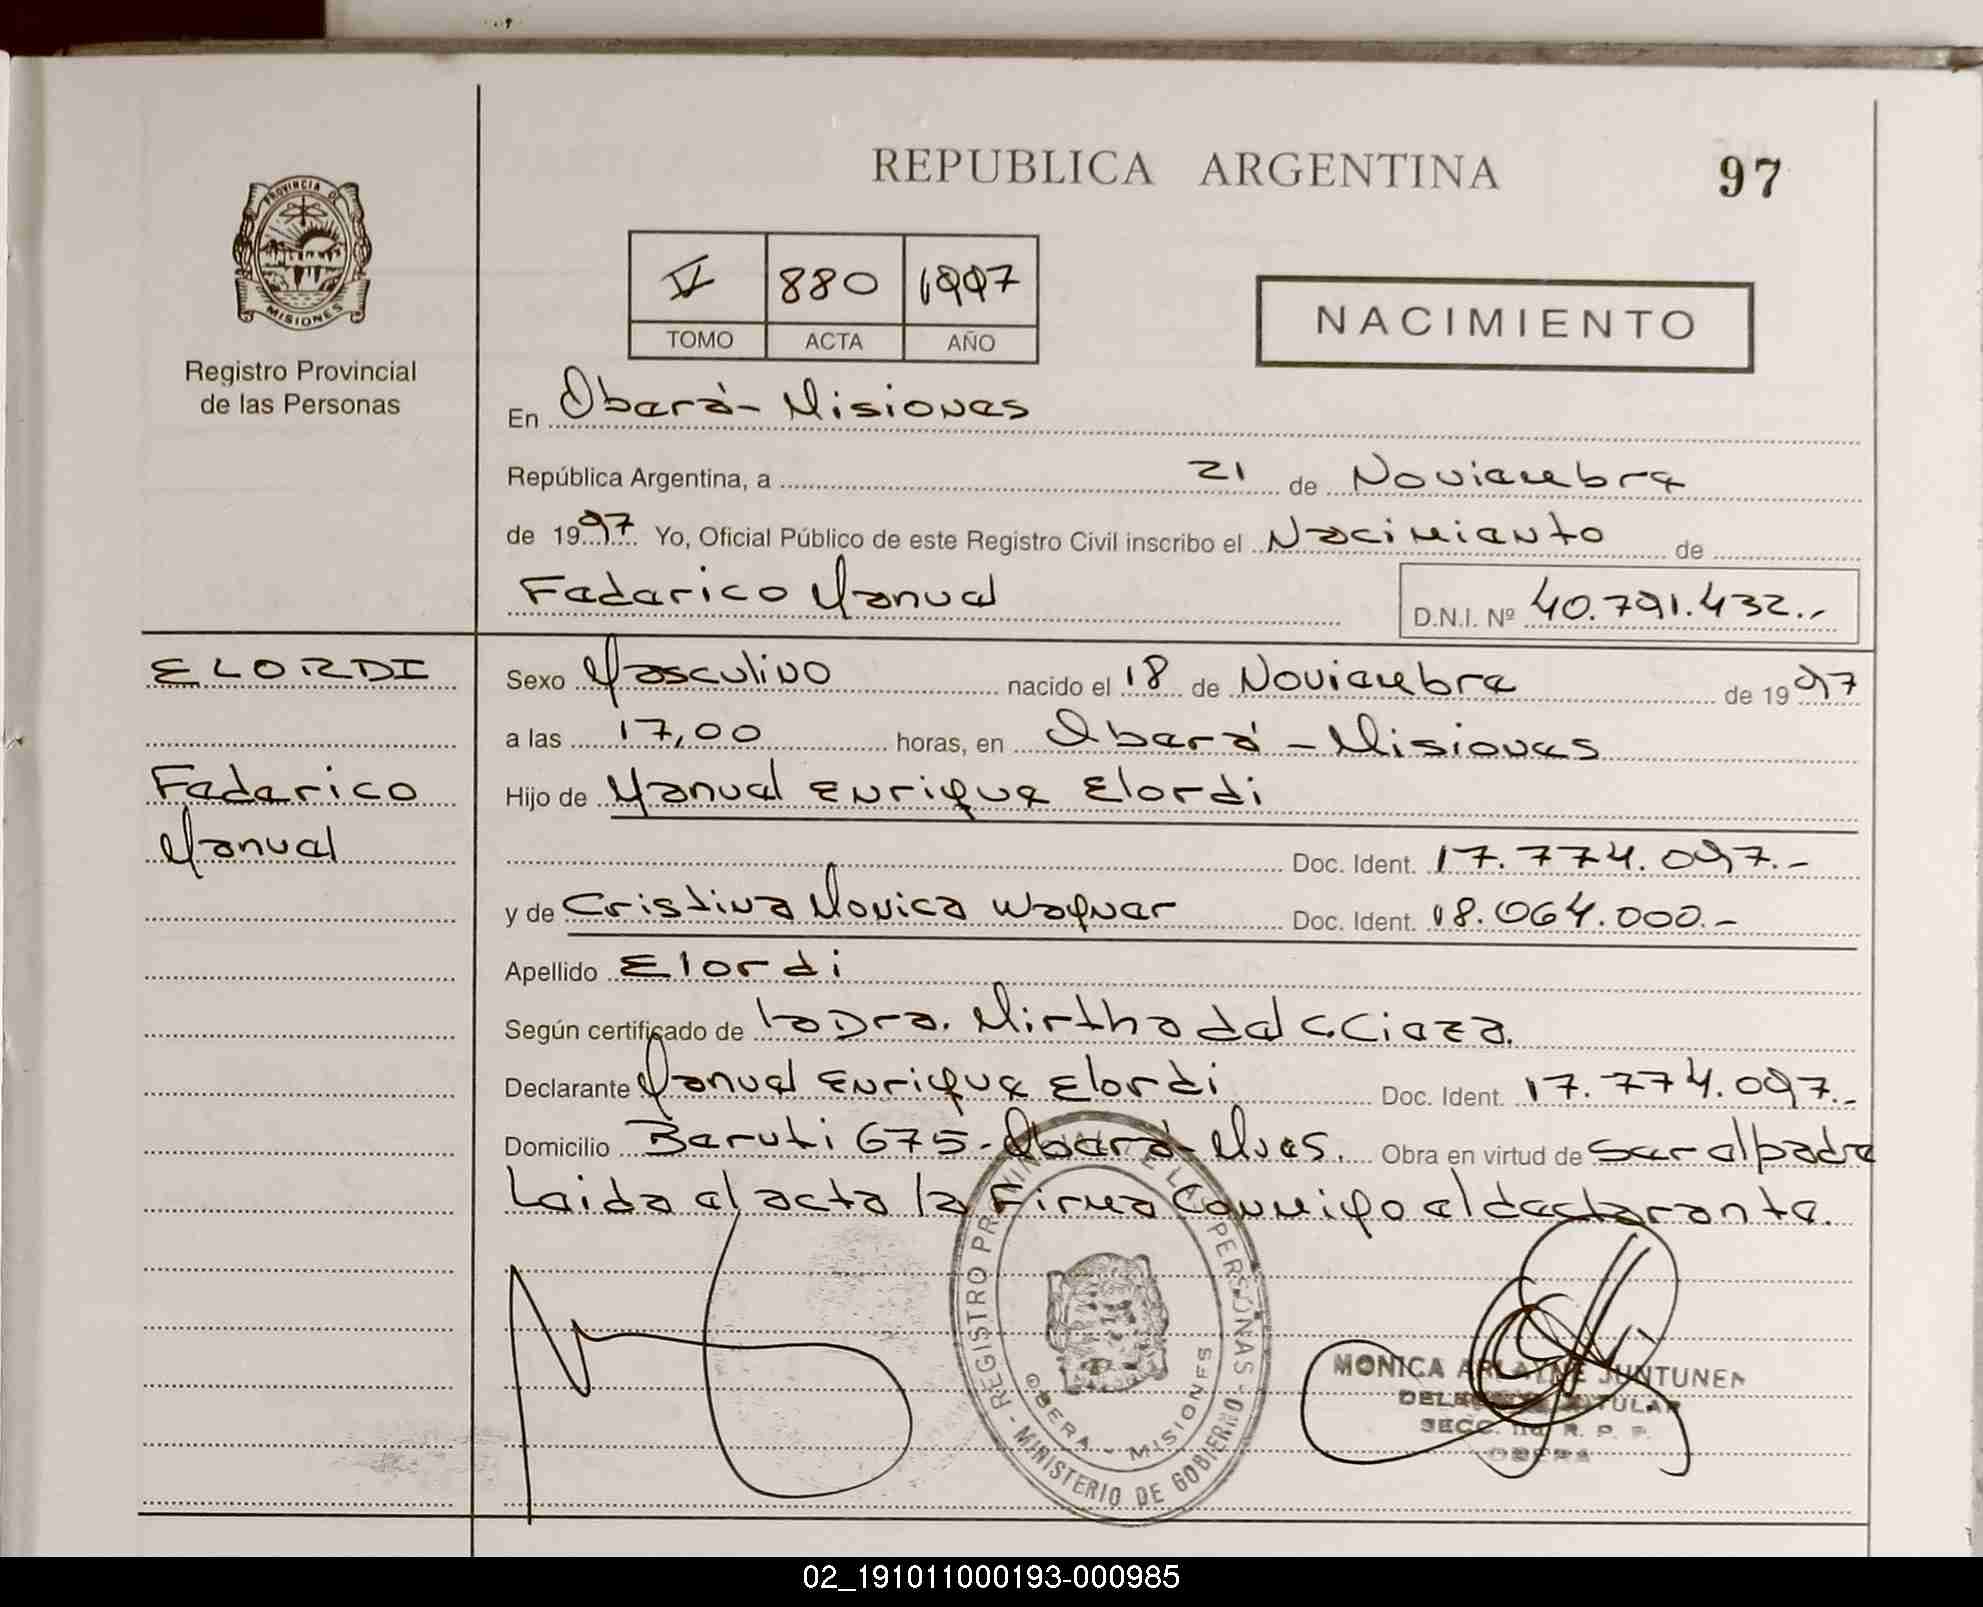 REPUBLICA ARGENTINA
97
PROVINCIA DE
MISIONES
Registro Provincial
de las Personas
IV 880 1997
TOMO ACTA AÑO
NACIMIENTO
En Oberá - Misiones
República Argentina, a 21 de Noviembre
de 1997 Yo, Oficial Público de este Registro Civil inscribo el Nacimiento de
Federico Manuel D.N.I. Nº 40.791.432.-
ELORDI
Federico
Manuel
Sexo Masculino nacido el 18 de Noviembre de 1997
a las 17,00 horas, en Oberá - Misiones
Hijo de Manuel Enrique Elordi
Doc. Ident. 17.774.097.-
y de Cristina Monica Wagner Doc. Ident. 18.064.000.-
Apellido Elordi
Según certificado de la Dra. Mirtha del C. Cieza.
Declarante Manuel Enrique Elordi Doc. Ident. 17.774.097.-
Domicilio Beruti 675 - Oberá - Mnes. Obra en virtud de ser el padre
Leida el acta la Firma Conmigo el declarante.
REGISTRO PROVINCIAL DE LAS PERSONAS - MINISTERIO DE GOBIERNO
OBERA - MISIONES
MONICA ARLAYNE JUNTUNEN
TITULAR
SECC. R. P. P.
OBERA
02_191011000193-000985